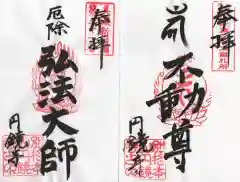 奉拝
不動尊
円鏡寺
奉拝
厄除
弘法大師
円鏡寺